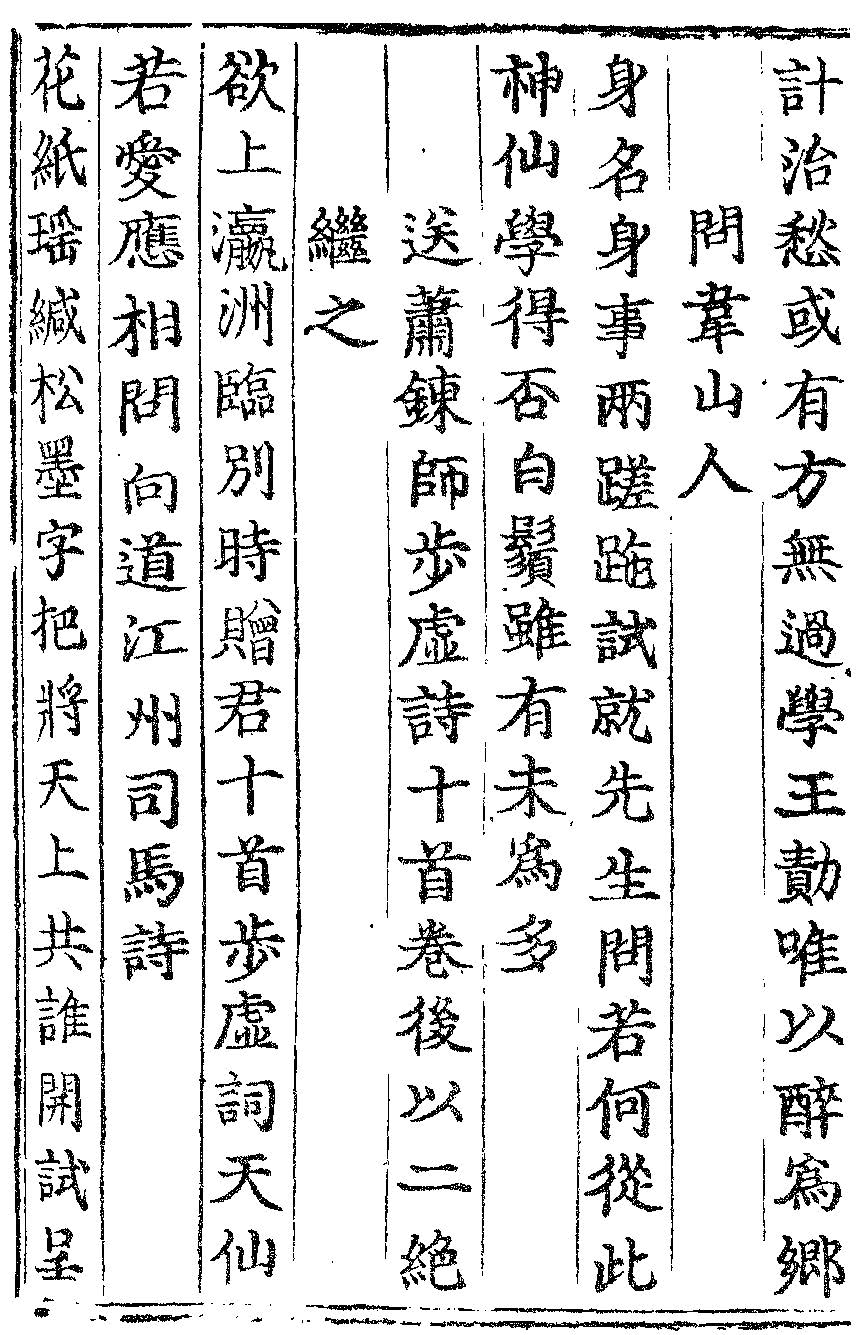 計治愁或有方無過學王勣唯以醉爲鄉
問韋山人
身名身事兩蹉跎試就先生問若何從此
神仙學得否白鬚雖有未爲多
送蕭鍊師步虛詩十首卷後以二絶
繼之
欲上瀛洲臨別時贈君十首步虛詞天仙
若愛應相問向道江州司馬詩
花紙瑶緘松墨字把將天上共誰開試呈